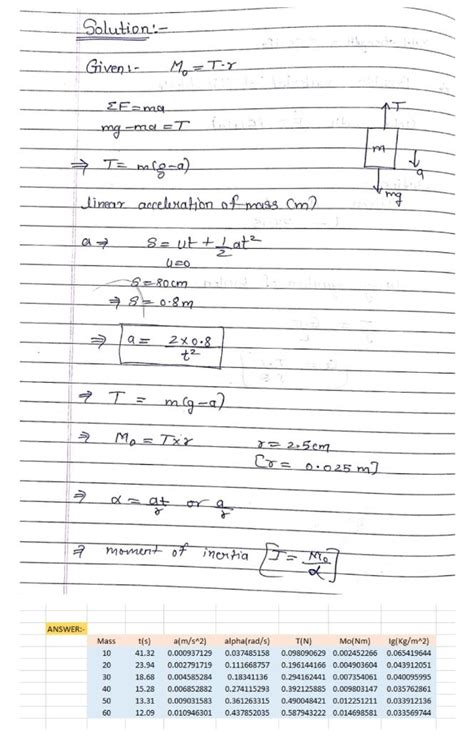 Solution:-
Given:- M₀ = T·r
ΣF = ma
mg - ma = T
⇒ T = m(g-a)
T
m
a
mg
linear acceleration of mass (m)
a ⇒ S = ut + 1/2 at²
u=0
S = 80cm
⇒ S = 0.8m
⇒ a = 2×0.8/t²
⇒ T = m(g-a)
⇒ M₀ = T×r r = 2.5cm
[r = 0.025m]
⇒ α = at/r or a/r
⇒ moment of inertia [I = M₀/α]
ANSWER:-
Mass t(s) a(m/s^2) alpha(rad/s) T(N) Mo(Nm) Ig(Kg/m^2)
10 41.32 0.000937129 0.037485158 0.098090629 0.002452266 0.065419644
20 23.94 0.002791719 0.111668757 0.196144166 0.004903604 0.043912051
30 18.68 0.004585284 0.18341136 0.294162441 0.007354061 0.040095995
40 15.28 0.006852882 0.274115293 0.392125885 0.009803147 0.035762861
50 13.31 0.009031583 0.361263315 0.490048421 0.012251211 0.033912136
60 12.09 0.010946301 0.437852035 0.587943222 0.014698581 0.033569744